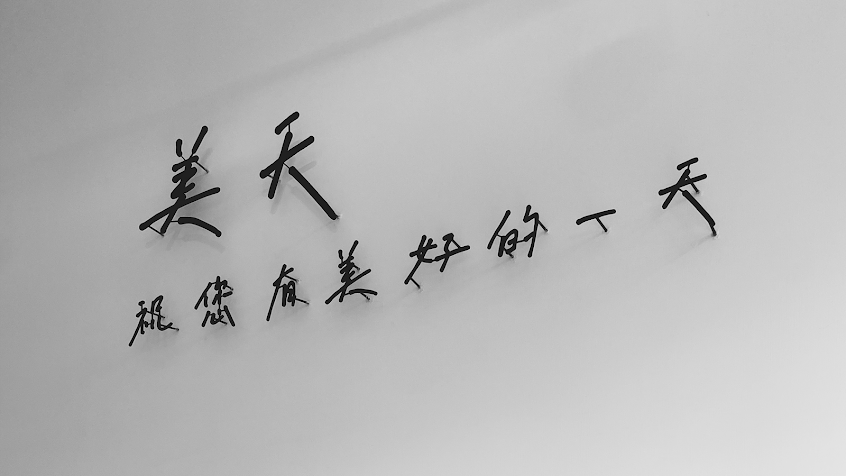 美天
祝您有美好的一天